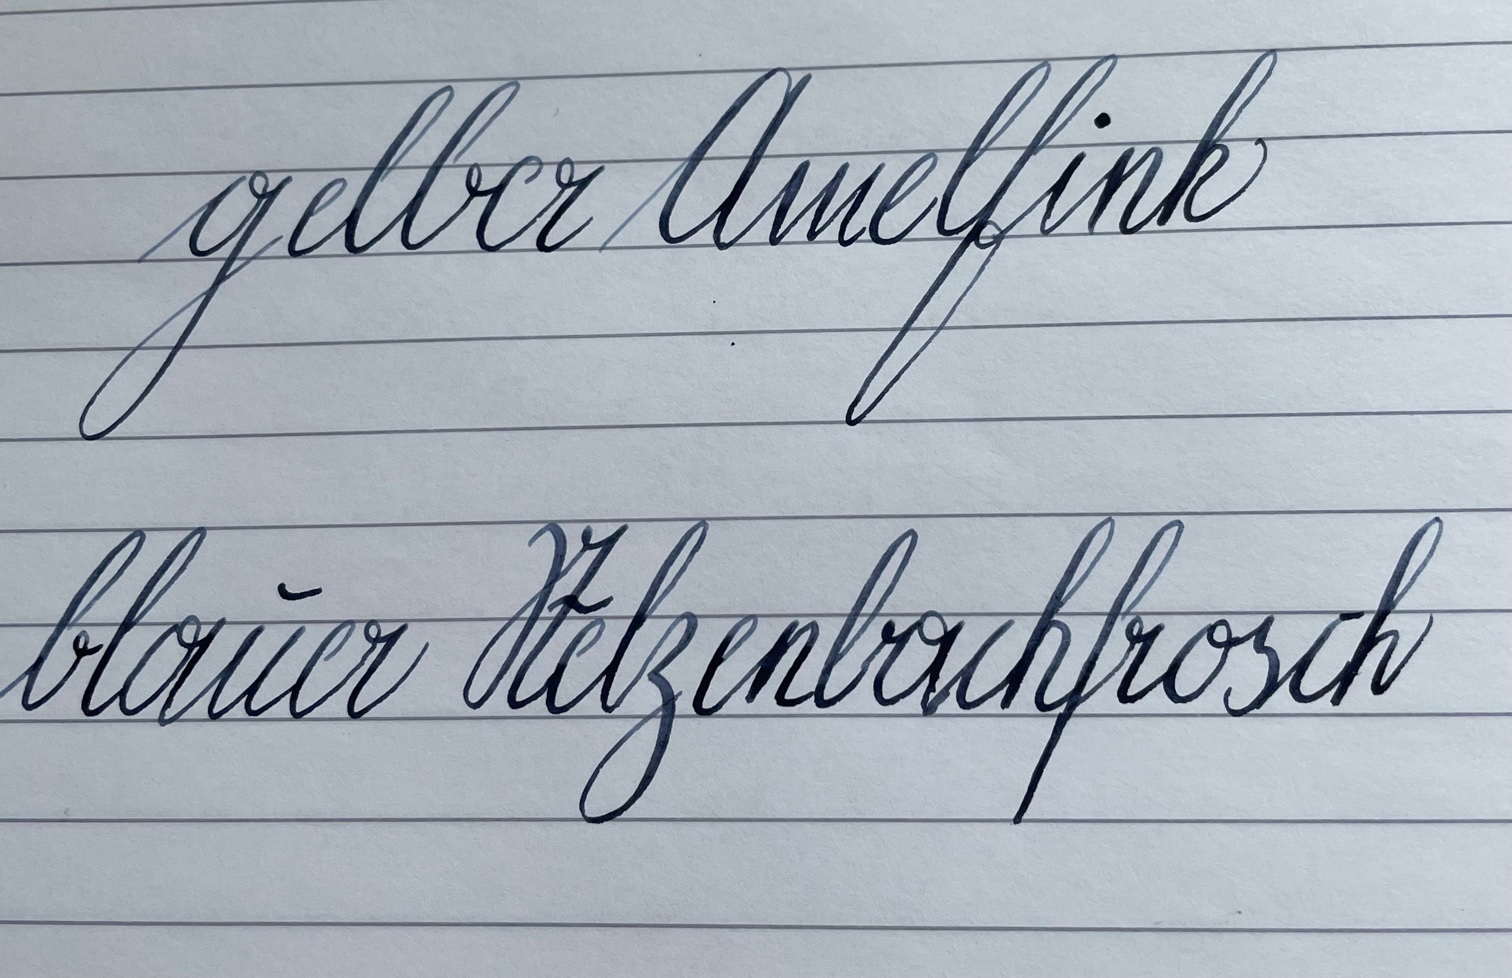 gelber Amelfink
blauer Stelzenbachfrosch